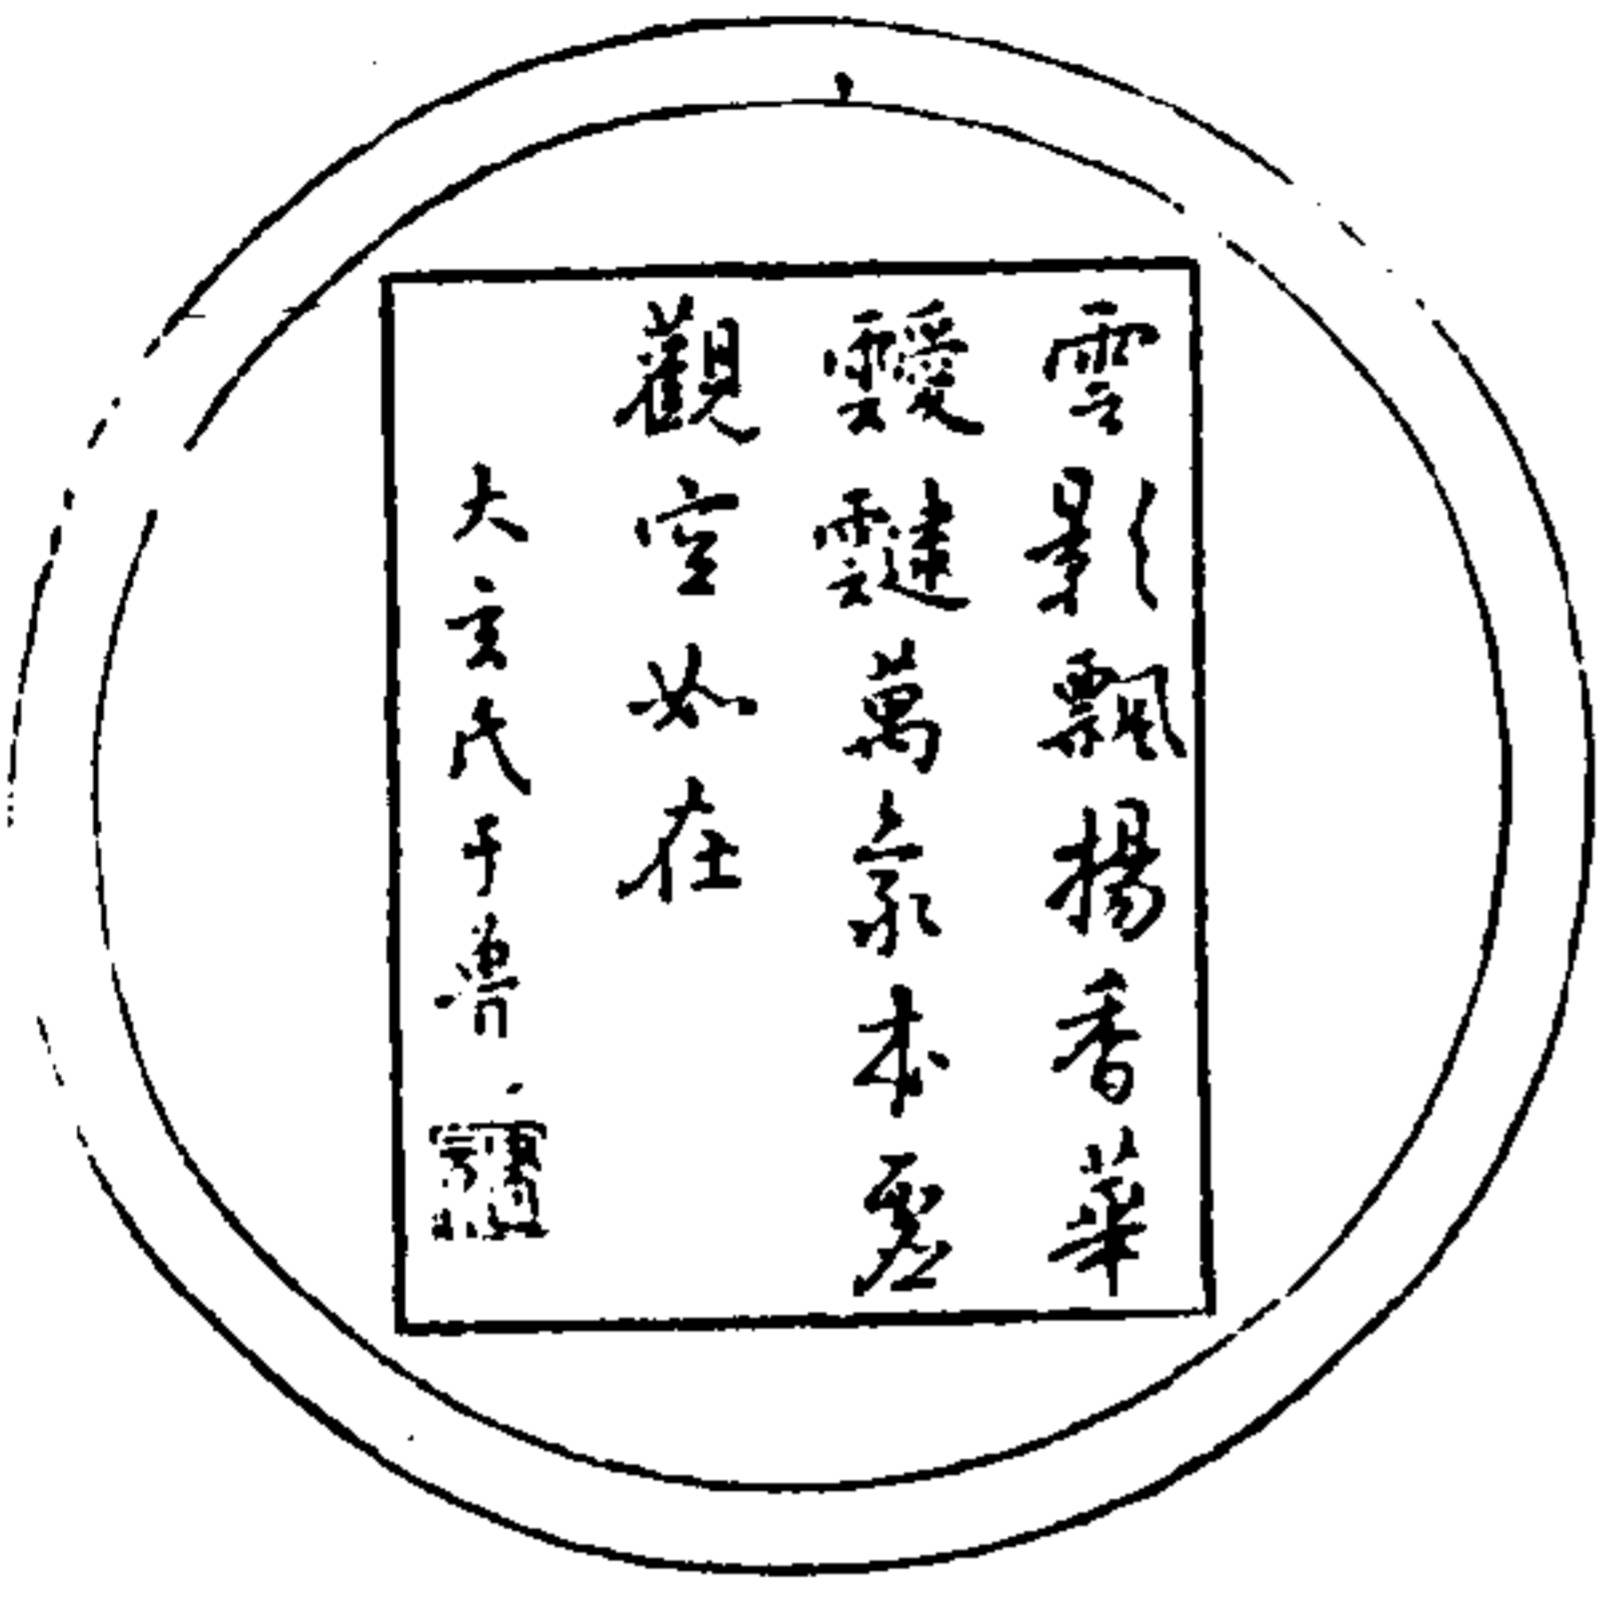 雲影飄揚香華
靉靆萬象本虛
觀空如在
大玄氏于魯